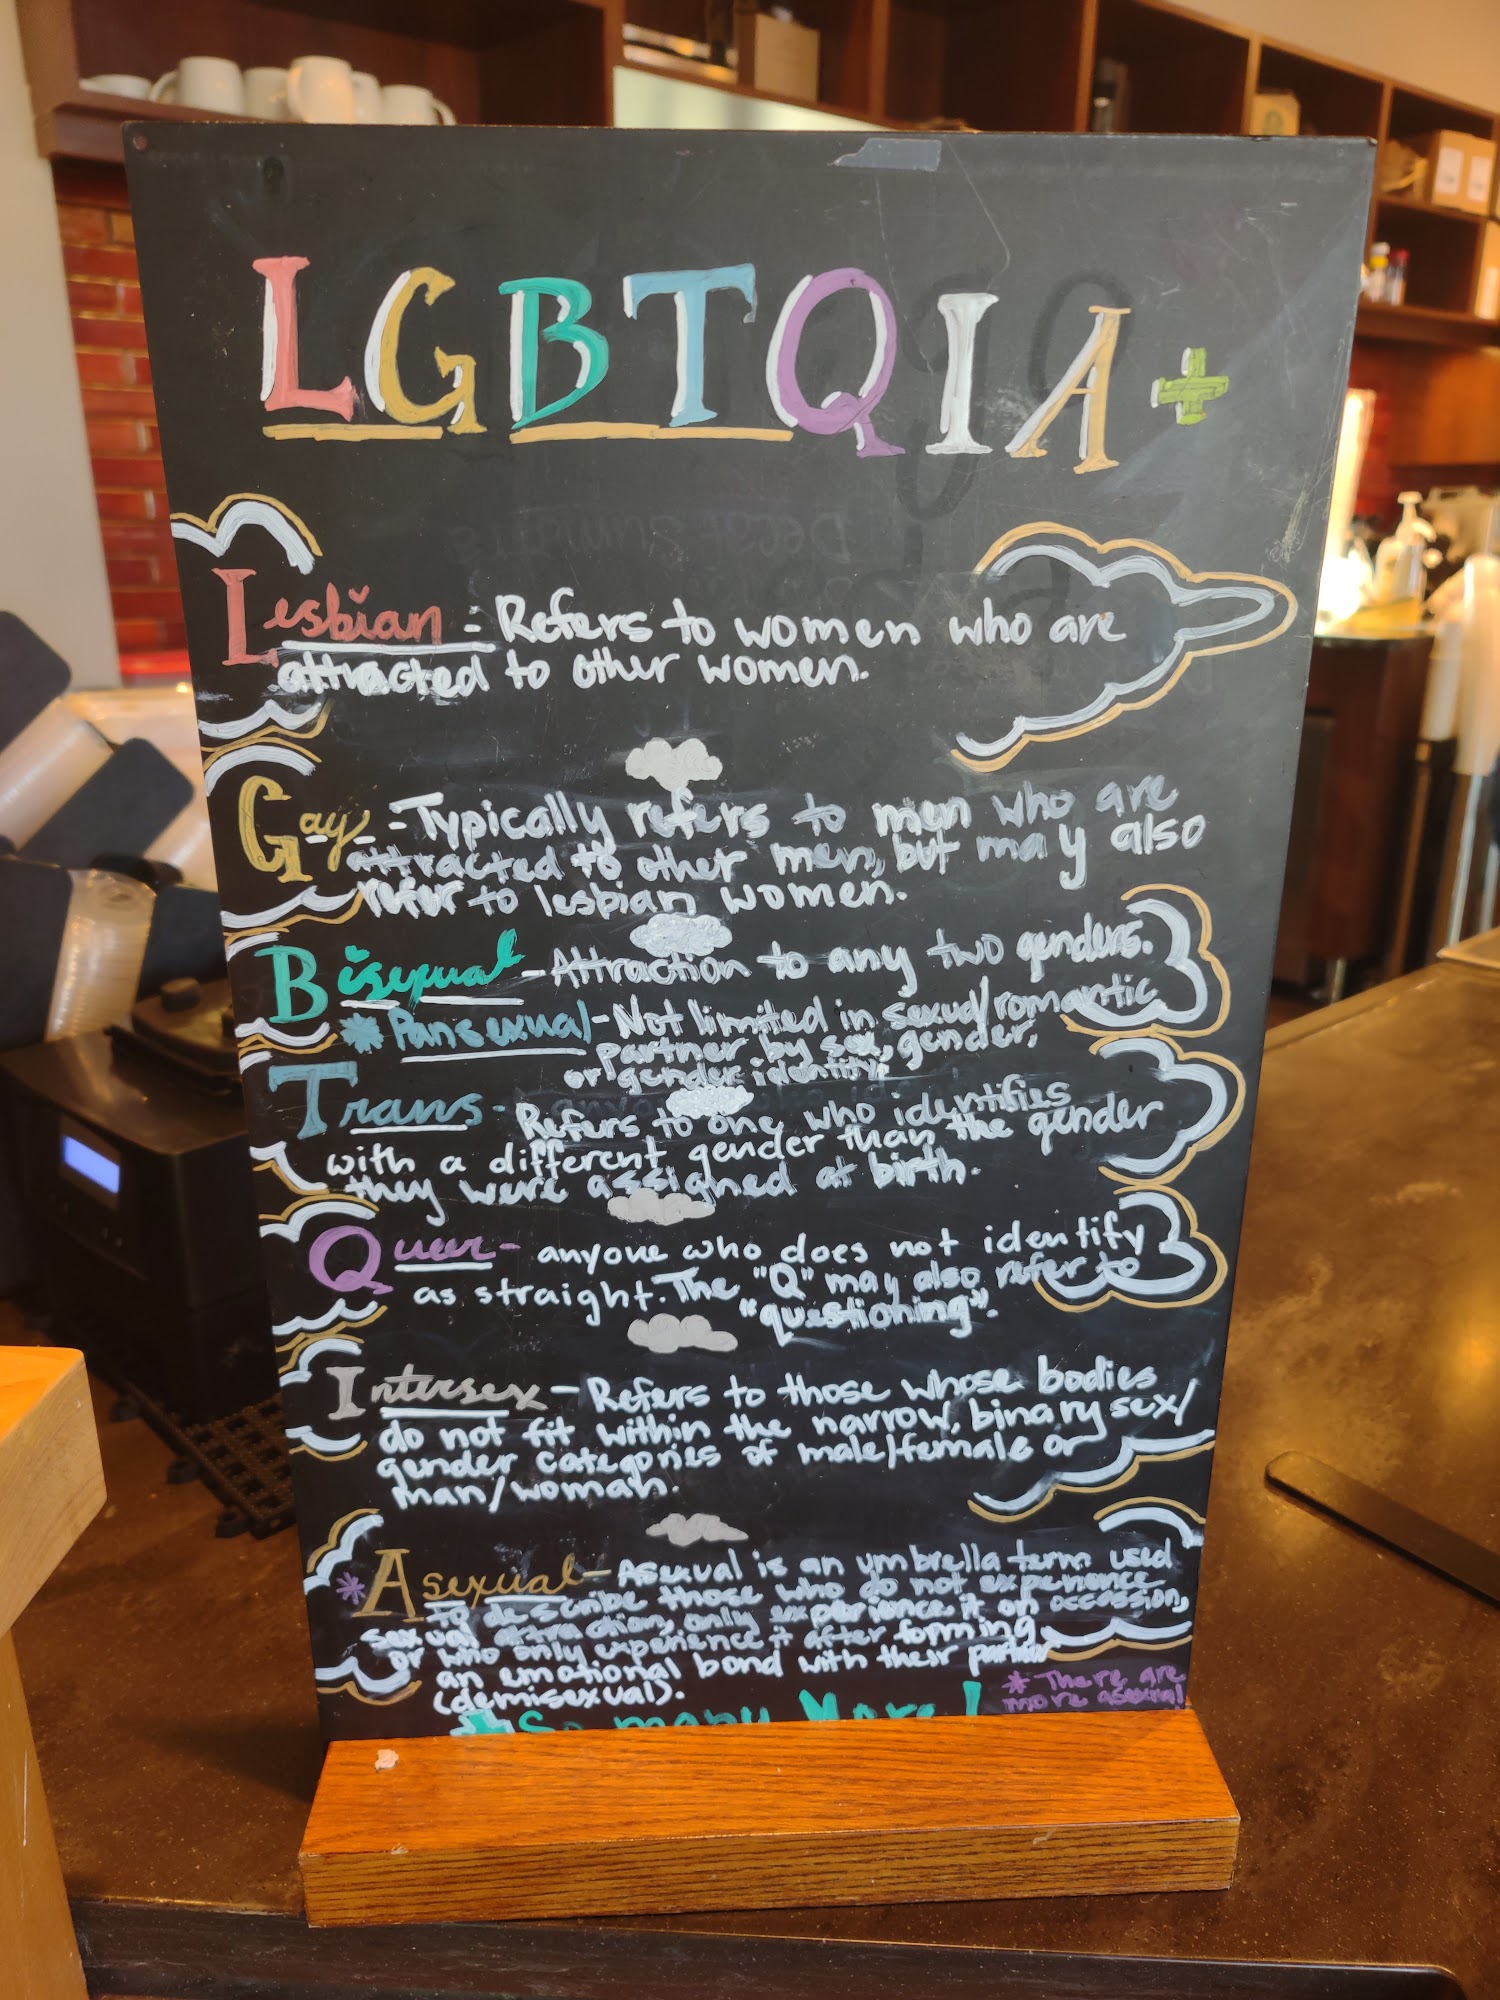 LGBTQIA+
Lesbian - Refers to women who are
attracted to other women.
Gay - Typically refers to men who are
attracted to other men, but may also
refer to lesbian women.
Bisexual - Attraction to any two genders.
* Pansexual - Not limited in sexual/romantic
partner by sex, gender,
or gender identity.
Trans - Refers to one who identifies
with a different gender than the gender
they were assigned at birth.
Queer - anyone who does not identify
as straight. The "Q" may also refer to
"questioning".
Intersex - Refers to those whose bodies
do not fit within the narrow, binary sex/
gender categories of male/female or
man/woman.
*Asexual - Asexual is an umbrella term used
to describe those who do not experience
sexual attraction, only experience it on occassion,
or who only experience it after forming
an emotional bond with their partner
(demisexual).
* There are
more asexual
+ So many More!